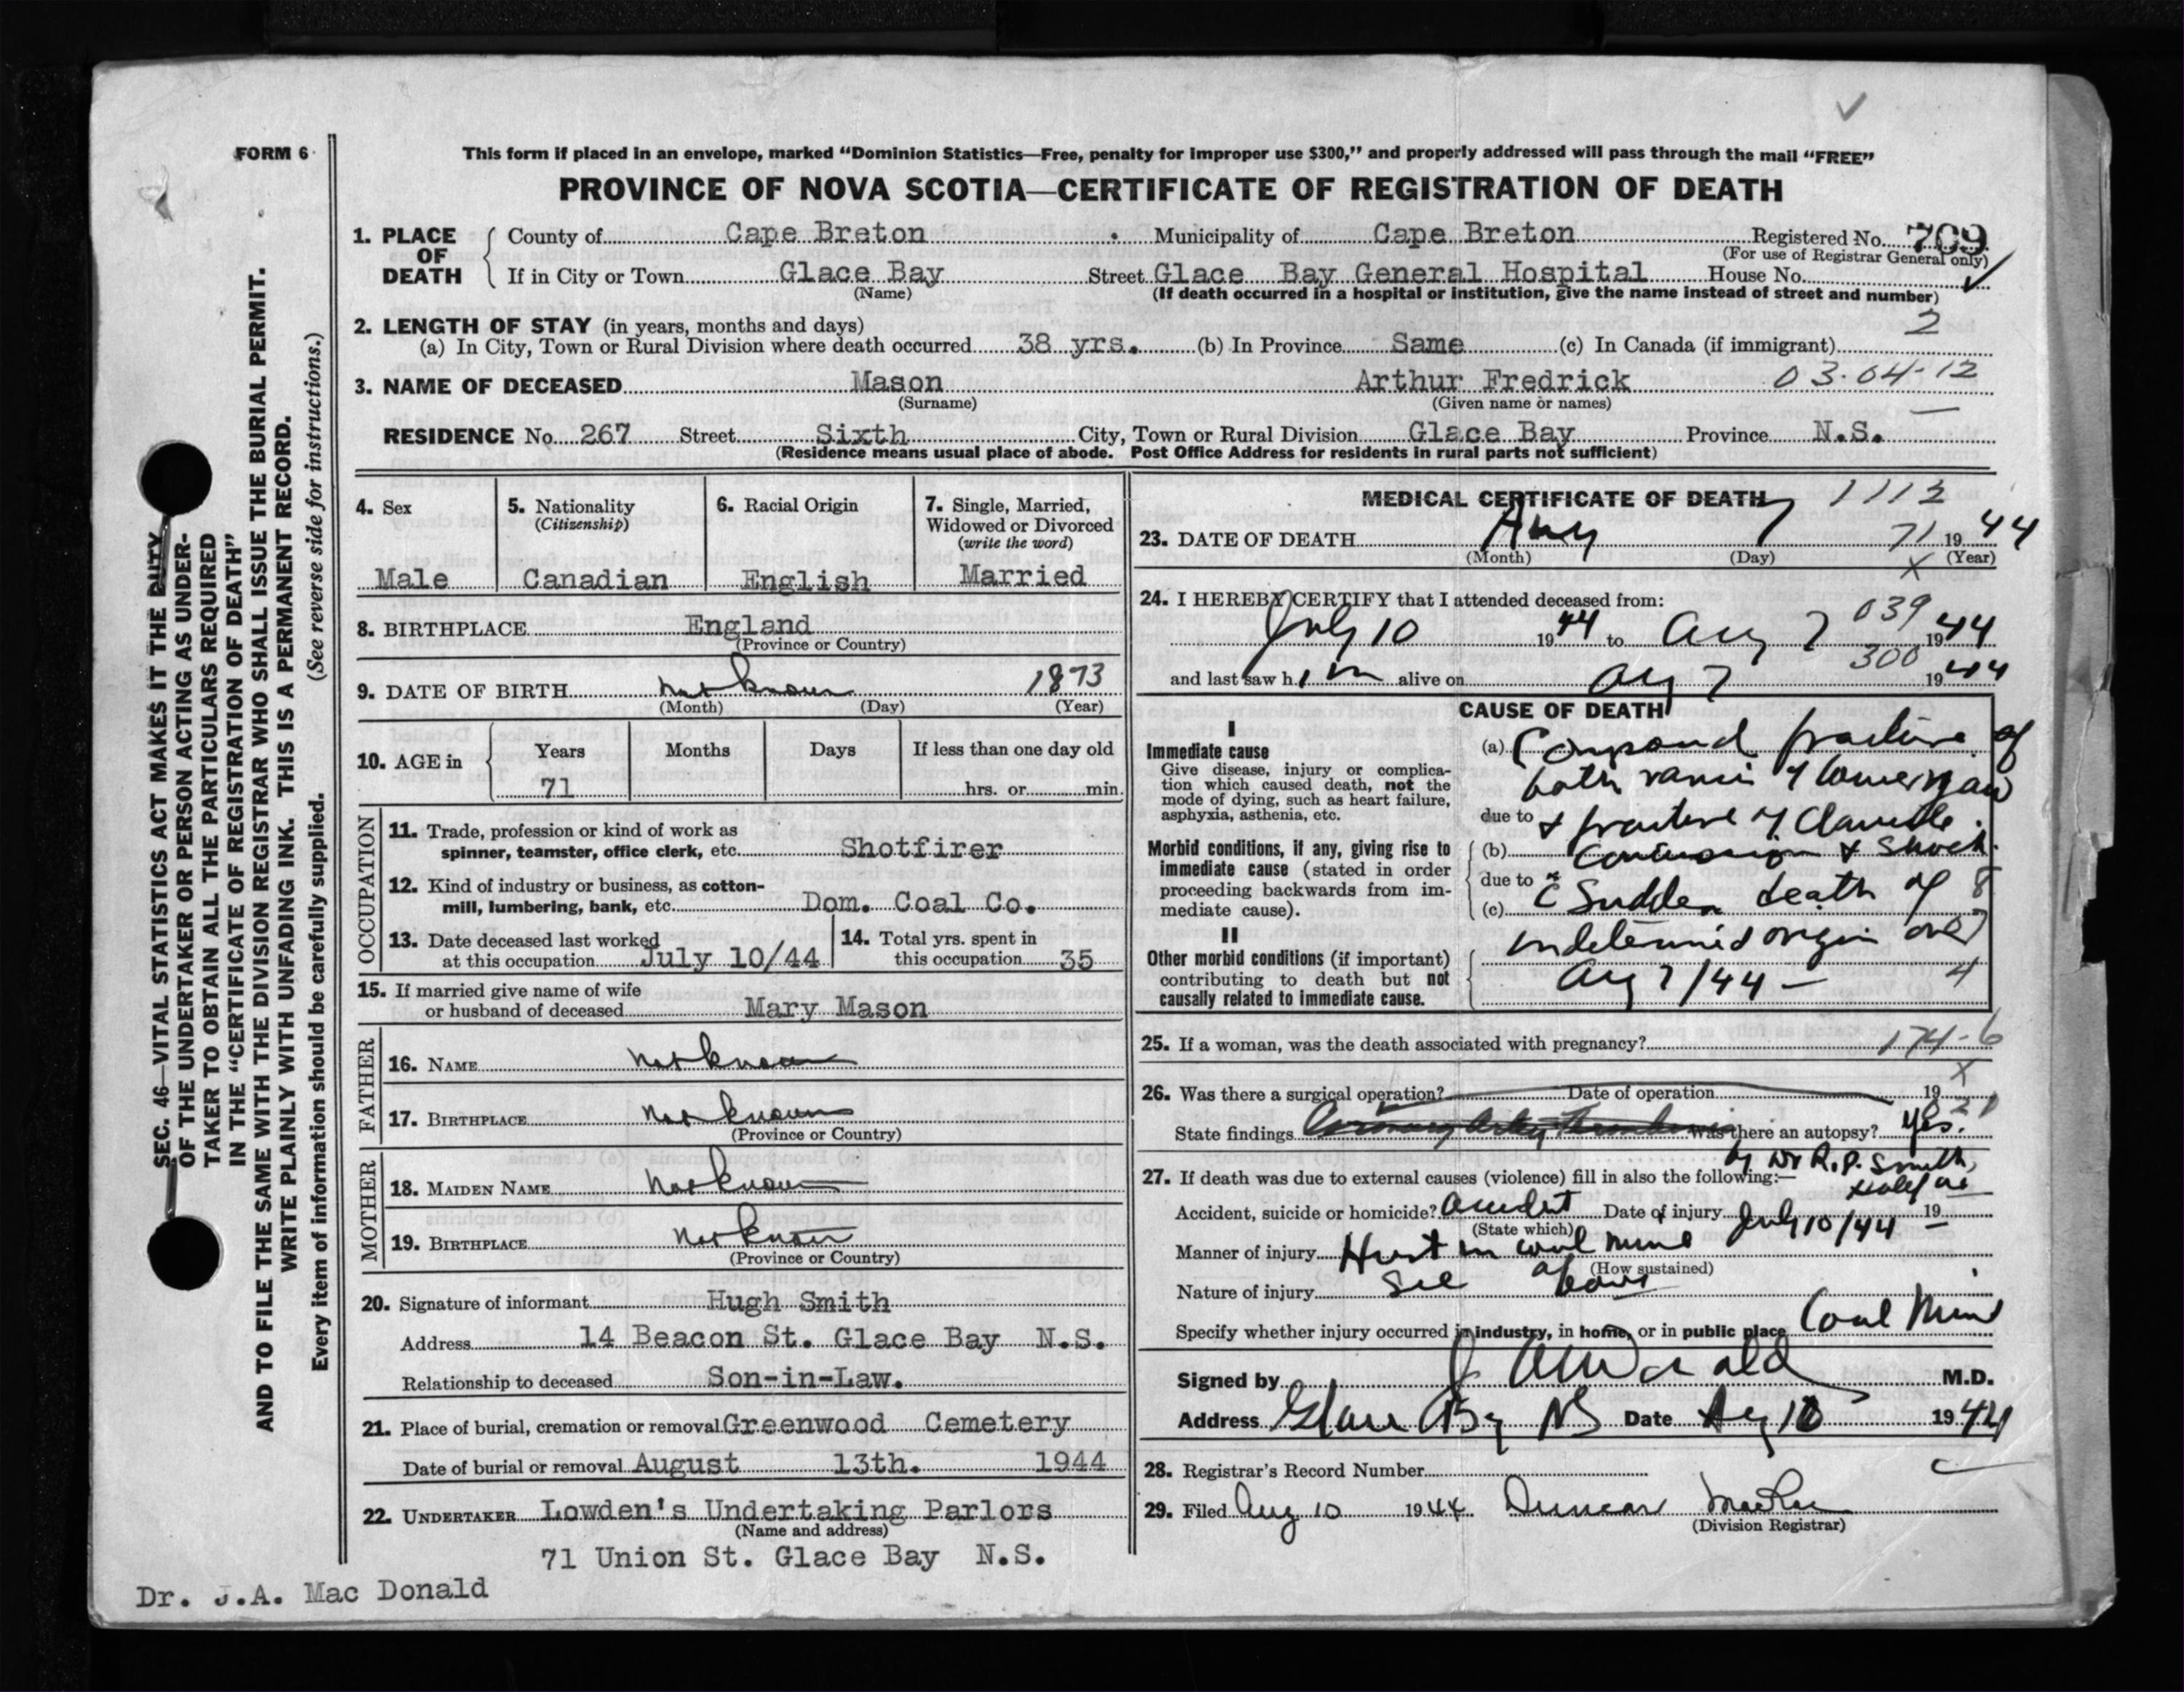 FORM 6
This form if placed in an envelope, marked “Dominion Statistics—Free, penalty for improper use $300,” and properly addressed will pass through the mail “FREE”
PROVINCE OF NOVA SCOTIA—CERTIFICATE OF REGISTRATION OF DEATH
1. PLACE OF DEATH County of Cape Breton Municipality of Cape Breton Registered No. 709
(For use of Registrar General only)
If in City or Town Glace Bay Street Glace Bay General Hospital House No.
(Name) (If death occurred in a hospital or institution, give the name instead of street and number)
2. LENGTH OF STAY (in years, months and days) 2
(a) In City, Town or Rural Division where death occurred 38 yrs. (b) In Province Same (c) In Canada (if immigrant)
3. NAME OF DECEASED Mason Arthur Fredrick 03-04-12
(Surname) (Given name or names)
RESIDENCE No. 267 Street Sixth City, Town or Rural Division Glace Bay Province N.S.
(Residence means usual place of abode. Post Office Address for residents in rural parts not sufficient)
4. Sex 5. Nationality 6. Racial Origin 7. Single, Married,
(Citizenship) Widowed or Divorced
(write the word)
Male Canadian English Married
8. BIRTHPLACE England
(Province or Country)
9. DATE OF BIRTH not known 1873
(Month) (Day) (Year)
10. AGE in Years Months Days If less than one day old
71 hrs. or min.
OCCUPATION
11. Trade, profession or kind of work as
spinner, teamster, office clerk, etc. Shotfirer
12. Kind of industry or business, as cotton-
mill, lumbering, bank, etc. Dom. Coal Co.
13. Date deceased last worked
at this occupation July 10/44
14. Total yrs. spent in
this occupation 35
15. If married give name of wife
or husband of deceased Mary Mason
FATHER
16. NAME not known
17. BIRTHPLACE not known
(Province or Country)
MOTHER
18. MAIDEN NAME not known
19. BIRTHPLACE not known
(Province or Country)
20. Signature of informant Hugh Smith
Address 14 Beacon St. Glace Bay N.S.
Relationship to deceased Son-in-Law.
21. Place of burial, cremation or removal Greenwood Cemetery
Date of burial or removal August 13th. 1944
22. UNDERTAKER Lowden's Undertaking Parlors
(Name and address)
71 Union St. Glace Bay N.S.
Dr. J.A. Mac Donald
MEDICAL CERTIFICATE OF DEATH 1112
23. DATE OF DEATH Aug 7 71 1944
(Month) (Day) (Year)
24. I HEREBY CERTIFY that I attended deceased from: 039
July 10 1944 to Aug 7 1944
300
and last saw him alive on Aug 7 1944
CAUSE OF DEATH
I
Immediate cause
Give disease, injury or complica-
tion which caused death, not the
mode of dying, such as heart failure,
asphyxia, asthenia, etc.
(a) Compound fracture of
both rami of lower jaw
due to & fracture of Clavicle.
Morbid conditions, if any, giving rise to
immediate cause (stated in order
proceeding backwards from im-
mediate cause).
(b) & Shock.
due to
(c) Sudden death of 8
II
Other morbid conditions (if important)
contributing to death but not
causally related to immediate cause.
undetermined origin on
Aug 7/44 — 4
25. If a woman, was the death associated with pregnancy? 174-6
26. Was there a surgical operation? Date of operation 19
State findings Coronary Artery Thrombosis Was there an autopsy? Yes.
by Dr R.P. Smith,
Halifax
27. If death was due to external causes (violence) fill in also the following:—
Accident, suicide or homicide? Accident Date of injury July 10/44 19
(State which)
Manner of injury Hurt in coal mine
(How sustained)
Nature of injury See above
Specify whether injury occurred in industry, in home, or in public place Coal Mine
Signed by J A McDonald M.D.
Address Glace Bay NS Date Aug 10 1944
28. Registrar's Record Number
29. Filed Aug 10 1944 Duncan MacRae
(Division Registrar)
SEC. 46—VITAL STATISTICS ACT MAKES IT THE DUTY
OF THE UNDERTAKER OR PERSON ACTING AS UNDER-
TAKER TO OBTAIN ALL THE PARTICULARS REQUIRED
IN THE “CERTIFICATE OF REGISTRATION OF DEATH”
AND TO FILE THE SAME WITH THE DIVISION REGISTRAR WHO SHALL ISSUE THE BURIAL PERMIT.
WRITE PLAINLY WITH UNFADING INK. THIS IS A PERMANENT RECORD.
Every item of information should be carefully supplied. (See reverse side for instructions.)